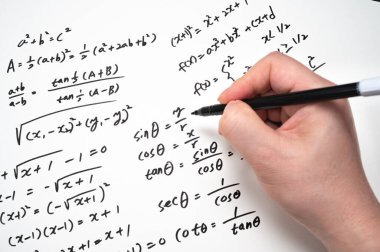 a²+b²=c²
A=½(a+b)²=½(a²+2ab+b²)
(a+b)/(a-b) = tan½(A+B)/tan½(A-B)
√((x,-x₂)²+(y,-y)²)
+√x+1 -1=0
=-√x+1
(x+1)²=(-√x+1)²
(x-1)(x-1)=x+1
(x+1)²=x²+2x+1
f(x)=ax³+bx²+cx+d
f(x)={
sinθ=y/r
cosθ=x/r
tanθ=sinθ/cosθ=
secθ=1/cosθ
cotθ=1/tanθ